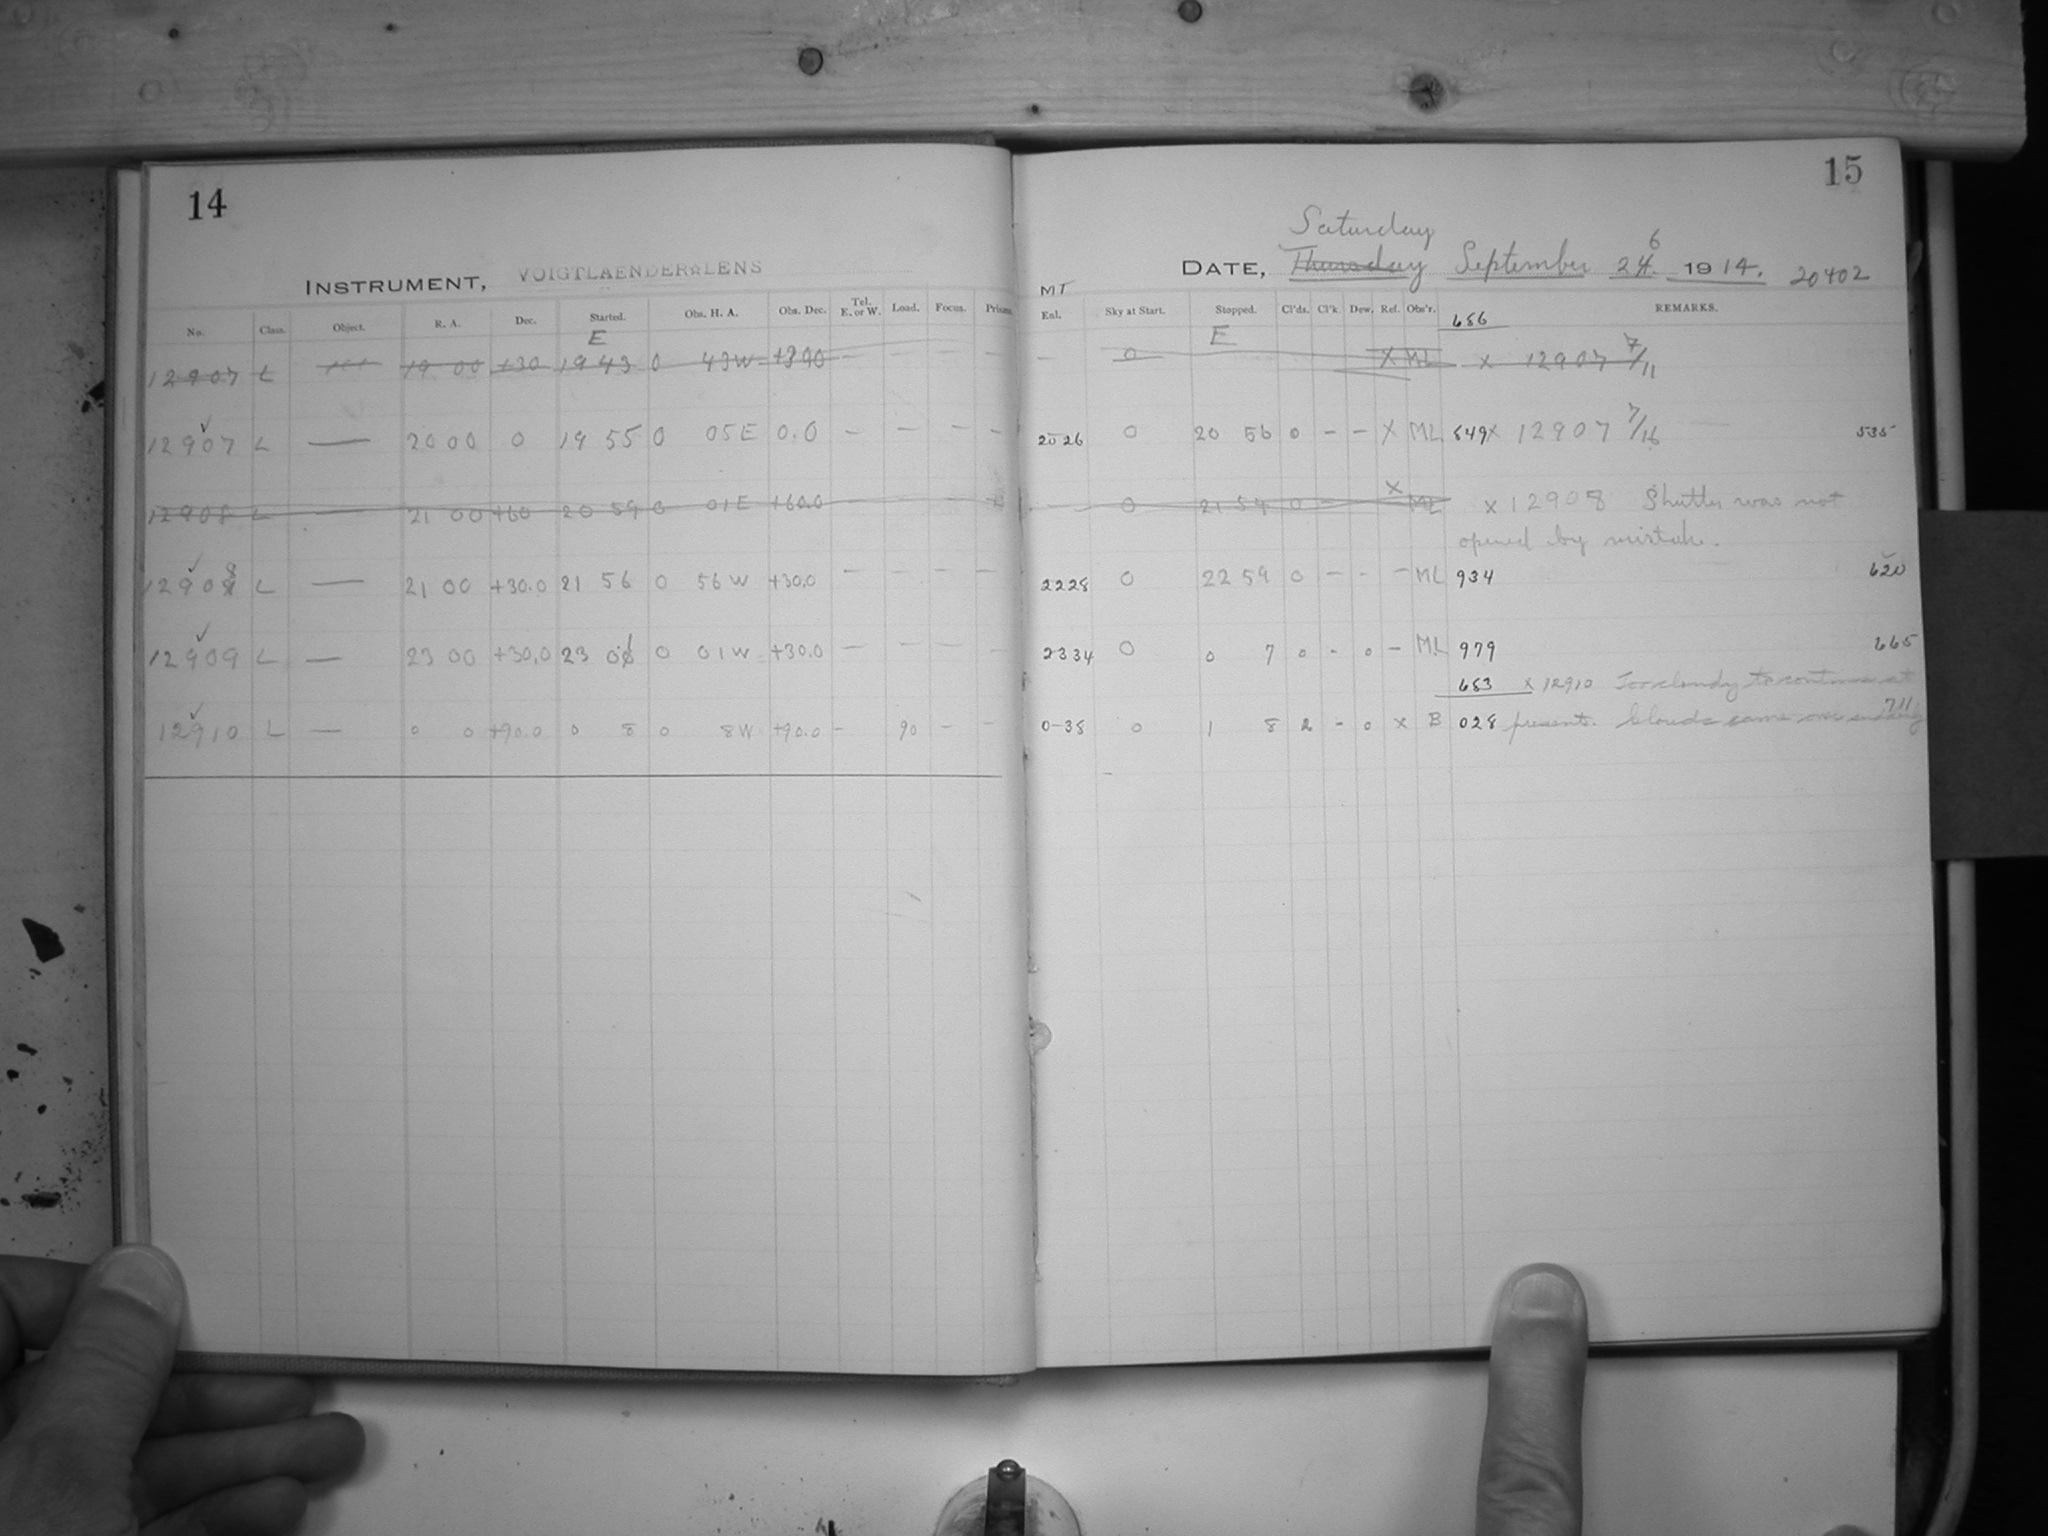 14
INSTRUMENT, VOIGTLAENDER LENS
No. Class. Object. R. A. Dec. Started. Obs. H. A. Obs. Dec. Tel. E. or W. Load. Focus. Prism.
E
12907 L 19 00 +30 19 43 0 43 W +30.0 — — — —
12907 L — 20 00 0 19 55 0 05 E 0.0 — — — —
12908 L — 21 00 +60 20 59 0 01 E +60.0
12908 L — 21 00 +30.0 21 56 0 56 W +30.0 — — — —
12909 L — 23 00 +30.0 23 06 0 01 W +30.0 — — — —
12910 L — 0 0 +90.0 0 8 0 8 W +90.0 - 90 - -
15
Saturday
DATE, Thursday September 24 6 1914. 20402
MT
Exl. Sky at Start. Stopped. Cl'ds. Cl'k. Dew. Ref. Obs'r. REMARKS.
E 656
— 0 X ML x 12907 7/11
2026 0 20 56 0 - - X ML 849 x 12907 7/16 535
0 21 54 0 - X ML x 12908 Shutter was not
opened by mistake.
2228 0 22 59 0 - - - ML 934 620
2334 0 0 7 0 - 0 - ML 979 665
683 x 12910 Too cloudy to continue at
0-38 0 1 8 2 - 0 x B 028 present. Clouds came over suddenly 711